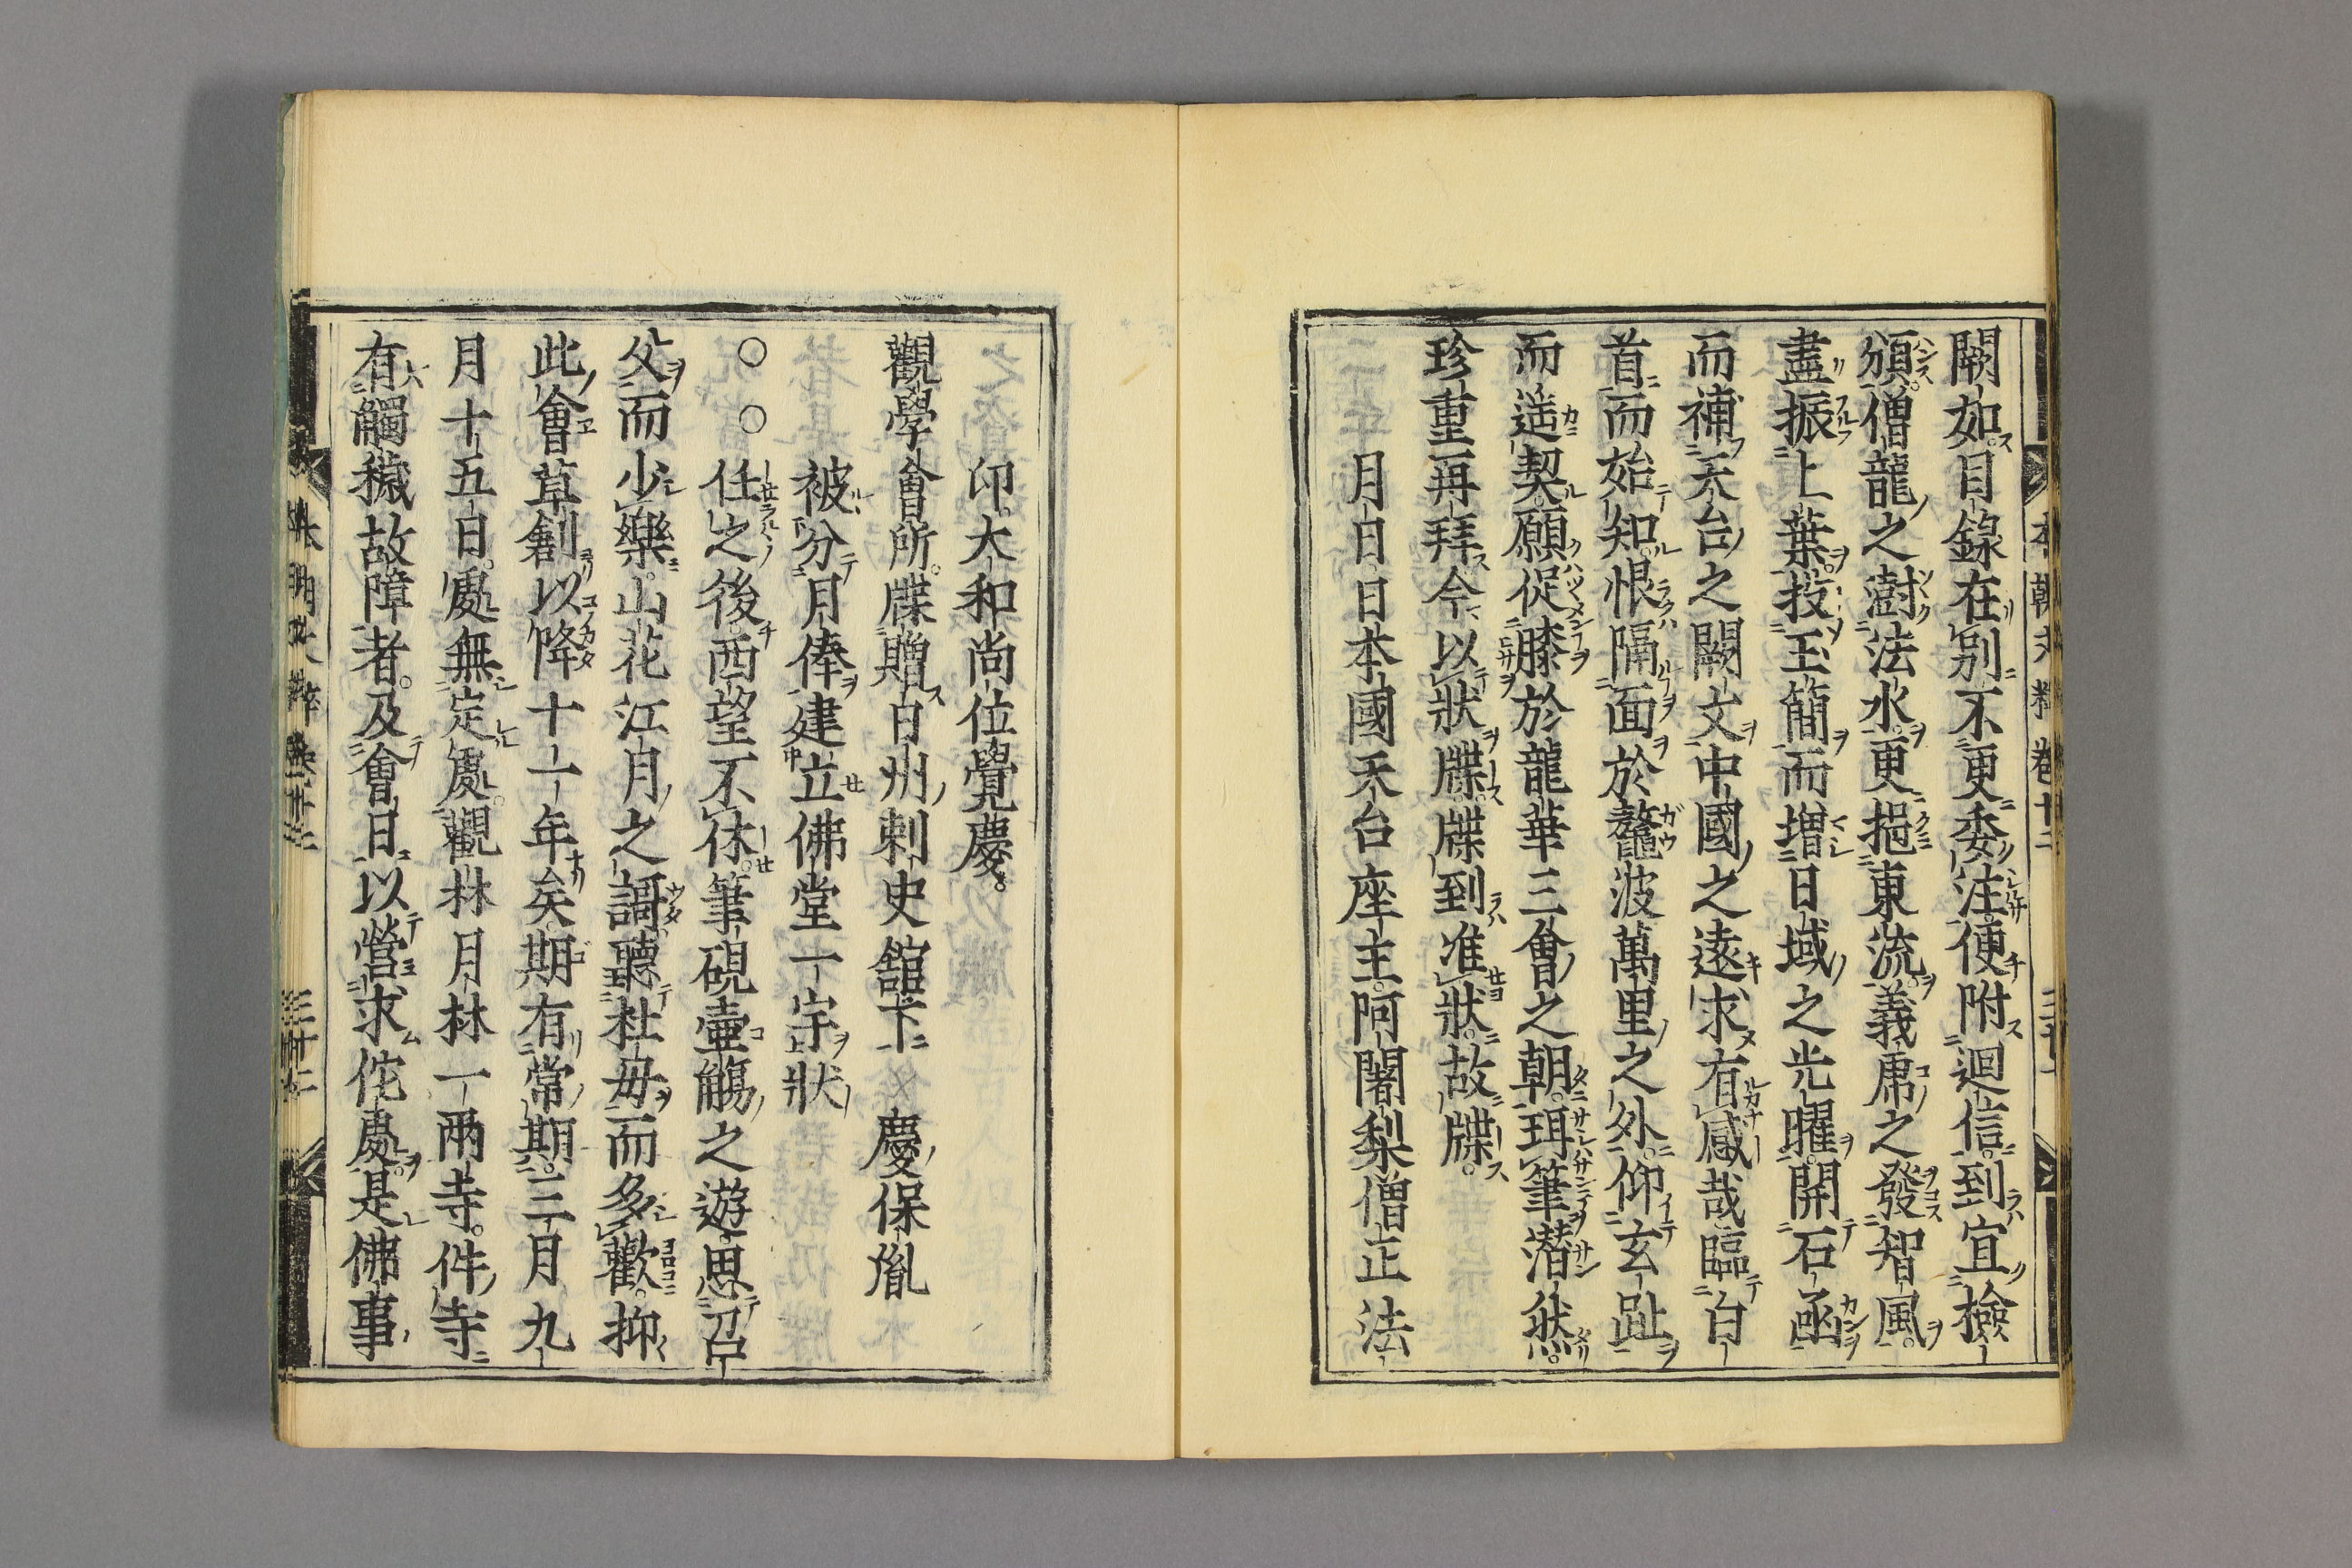 闕如目錄在別不更委注便附廻信到宜撿
頒僧龍之澍法水更挹東流義虎之發智風
盡振上葉投玉簡而増日域之光曜開石函
而補天台之闕文中國之遠求有感哉臨白
首而始知恨隔面於鼇波萬里之外仰玄趾
而遥契願促膝於龍華三會之朝珥筆潛然
珍重再拜今以狀牒牒到准狀故牒
月日日本國天台座主阿闍梨僧正法
印大和尚位覺慶
觀學會所牒贈日州刺史舘下慶保胤
被分月俸建立佛堂一宇狀
○○任之後西望不休筆硯壷觴之遊思召
父而少樂山花江月之謌聽杜毋而多歡抑
此會草創以降十一年矣期有常期三月九
月十五日處無定處觀林月林一兩寺件寺
有觸穢故障者及會日以營求佗處是佛事